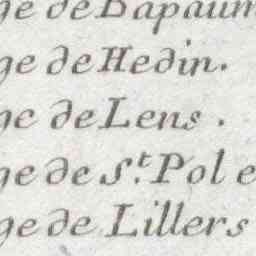 ge de Bapaum
ge de Hedin.
ge de Lens.
ge de St. Pol e
ge de Lillers